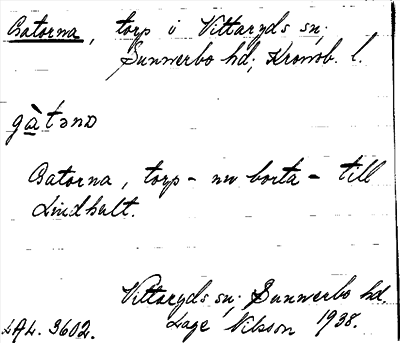 Gatorna, torp i Vittaryds sn;
Sunnerbo hd; Kronob. l.
gà̱tənɒ
Gatorna, torp - nu borta - till
Lindhult.
Vittaryds sn; Sunnerbo hd.
LAL. 3602. Lage Nilsson 1938.